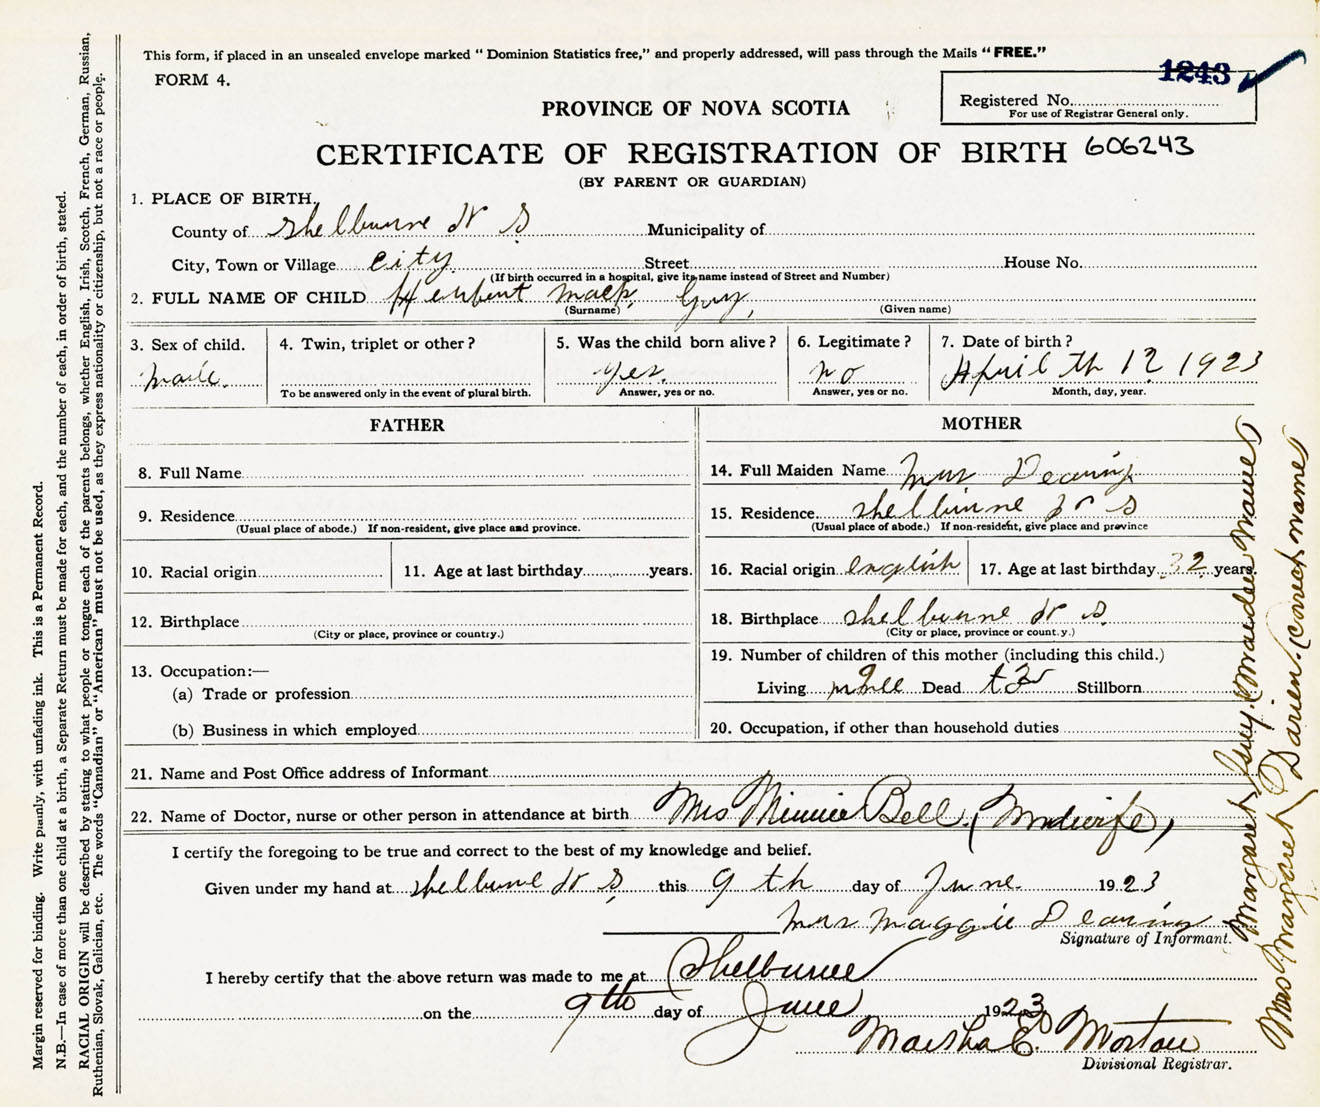 This form, if placed in an unsealed envelope marked “ Dominion Statistics free,” and properly addressed, will pass through the Mails “ FREE.”
FORM 4.
1243
PROVINCE OF NOVA SCOTIA
Registered No.
For use of Registrar General only.
CERTIFICATE OF REGISTRATION OF BIRTH 606243
(BY PARENT OR GUARDIAN)
1. PLACE OF BIRTH.
County of Shelburne N S Municipality of
City, Town or Village city Street House No.
(If birth occurred in a hospital, give its name instead of Street and Number)
2. FULL NAME OF CHILD Herbert Guy,
(Surname) (Given name)
3. Sex of child. 4. Twin, triplet or other ? 5. Was the child born alive ? 6. Legitimate ? 7. Date of birth ?
male. yes. no April th 12 1923
To be answered only in the event of plural birth. Answer, yes or no. Answer, yes or no. Month, day, year.
FATHER MOTHER
8. Full Name 14. Full Maiden Name Mrs Dearing
9. Residence 15. Residence Shelburne N S
(Usual place of abode.) If non-resident, give place and province. (Usual place of abode.) If non-resident, give place and province
10. Racial origin 11. Age at last birthday years. 16. Racial origin english 17. Age at last birthday 32 years.
12. Birthplace 18. Birthplace Shelburne N S
(City or place, province or country.) (City or place, province or count.y.)
19. Number of children of this mother (including this child.)
13. Occupation:—
(a) Trade or profession Living Dead Stillborn
(b) Business in which employed 20. Occupation, if other than household duties
21. Name and Post Office address of Informant
22. Name of Doctor, nurse or other person in attendance at birth Mrs Minnie Bell. (Midwife)
I certify the foregoing to be true and correct to the best of my knowledge and belief.
Given under my hand at Shelburne N S this 9 th day of June 1923
Mrs Maggie Dearing
Signature of Informant.
I hereby certify that the above return was made to me at Shelburne
on the 9th day of June 1923
Morton
Divisional Registrar.
Margaret Guy. (Maiden Name)
Mrs Margaret Darien. (Correct Name)
Margin reserved for binding. Write paunly, with unfading ink. This is a Permanent Record.
N.B.—In case of more than one child at a birth, a Separate Return must be made for each, and the number of each, in order of birth, stated.
RACIAL ORIGIN will be described by stating to what people or tongue each of the parents belongs, whether English, Irish, Scotch, French, German, Russian,
Ruthenian, Slovak, Galician, etc. The words “Canadian” or “American” must not be used, as they express nationality or citizenship, but not a race or people.